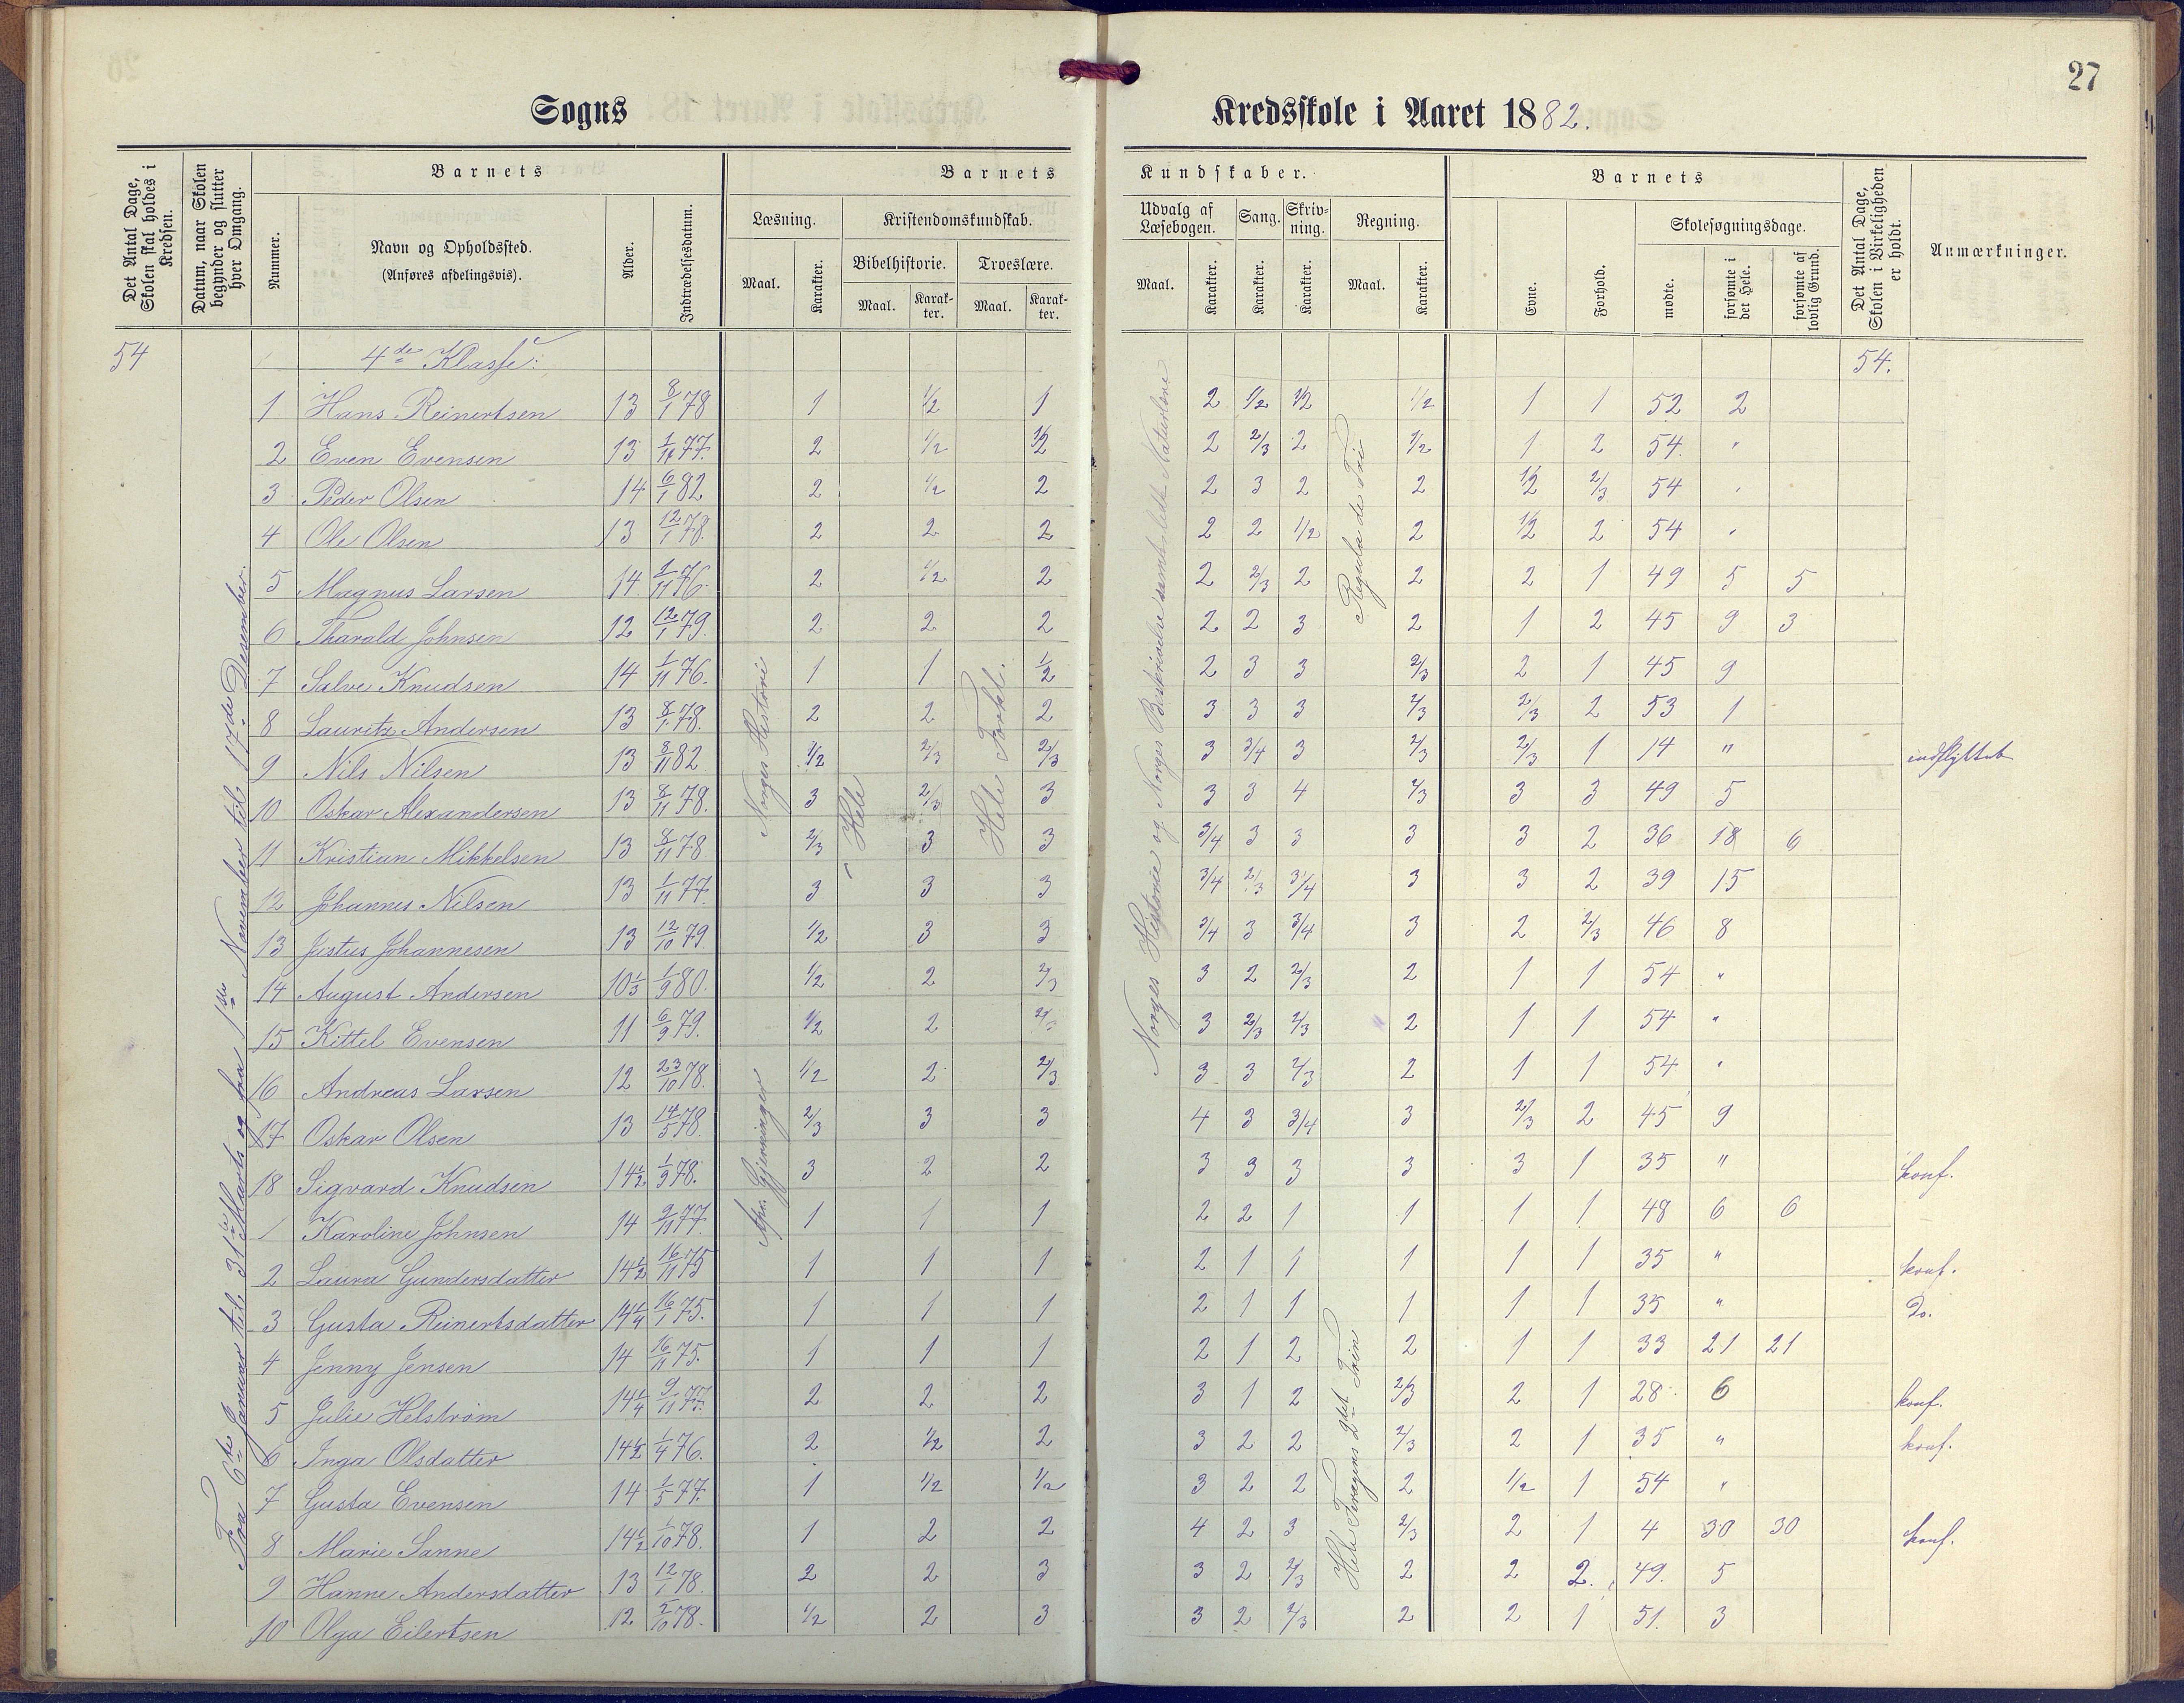 27
Sogns Kredsskole i Aaret 1882.
Det Antal Dage, Skolen skal holdes i Kredsen.
Datum, naar Skolen begynder og slutter hver Omgang.
Barnets
Nummer.
Navn og Opholdssted.
(Anføres afdelingsvis).
Alder.
Indtrædelsesdatum.
Barnets Kundskaber.
Læsning. Maal. Karakter.
Kristendomskundskab.
Bibelhistorie. Maal. Karakter.
Troeslære. Maal. Karakter.
Udvalg af Læsebogen. Maal. Karakter.
Sang. Karakter.
Skrivning. Karakter.
Regning. Maal. Karakter.
Barnets
Evne.
Forhold.
Skolesøgningsdage.
mødte.
forsømte i det Hele.
forsømte af lovlig Grund.
Det Antal Dage, Skolen i Virkeligheden er holdt.
Anmærkninger.
54 4de Klasse: 54.
Fra 6te Januar til 31te Marts og fra 1ste November til 17de Desember.
Norges Historie
Apo. Gjerninger
Hele
Hele Forkl.
Norges Historie og Norges Beskrivelse samt Naturlære
Regula de Tri
Hele Tavagens 2det Trin
1 Hans Reinertsen 13 8/1 78 1 1/2 1 2 1/2 1/2 1/2 1 1 52 2
2 Even Evensen 13 1/11 77. 2 1/2 1/2 2 2/3 2 1/2 1 2 54. "
3 Peder Olsen 14 6/1 82 2 1/2 2 2 3 2 2 1/2 2/3 54 "
4 Ole Olsen 13 12/1 78. 2 2 2 2 2 1/2 2 1/2 2 54 "
5 Magnus Larsen 14 1/11 76. 2 1/2 2 2 2/3 2 2 2 1 49 5 5
6 Tharald Johnsen 12 12/1 79. 2 2 2 2 2 3 2 1 2 45 9 3
7 Salve Knudsen 14 1/11 76. 1 1 1/2 2 3 3 2/3 2 1 45 9
8 Lauritz Andersen 13 8/1 78. 2 2 2 3 3 3 2/3 2/3 2 53 1
9 Nils Nilsen 13 8/11 82 1/2 2/3 2/3 3 3/4 3 2/3 2/3 1 14 " indflyttet
10 Oskar Alexandersen 13 8/11 78. 3 2/3 3 3 3 4 2/3 3 3 49 5
11 Kristian Mikkelsen 13 8/11 78 2/3 3 3 3/4 3 3 3 3 2 36 18 6
12 Johannes Nilsen 13 1/11 77. 3 3 3 3/4 2/3 3/4 3 3 2 39 15
13 Justus Johannesen 13 12/10 79. 1/2 3 3 3/4 3 3/4 3 2 2/3 46 8
14 August Andersen 10 1/3 1/9 80. 1/2 2 2/3 3 2 2/3 2 1 1 54 "
15 Kittel Evensen 11 6/9 79. 1/2 2 2/3 3 2/3 2/3 2 1 1 54 "
16 Andreas Larsen 12 23/10 78. 1/2 2 2/3 3 3 2/3 2 1 1 54 "
17 Oskar Olsen 13 14/5 78. 2/3 3 3 4 3 3/4 3 2/3 2 45 9
18 Sigvard Knudsen 14 1/2 1/9 78. 3 2 2 3 3 3 3 3 1 35 " konf.
1 Karoline Johnsen 14 9/11 77. 1 1 1 2 2 1 1 1 1 48 6 6
2 Laura Gundersdatter 14 1/2 16/11 75 1 1 1 2 1 1 1 1 1 35 " konf.
3 Gusta Reinertsdatter 14 1/4 16/1 75. 1 1 1 2 1 1 1 1 1 35 " Do.
4 Jenny Jensen 14 16/11 75. 1 1 1 2 1 2 2 1 1 33 21 21
5 Julie Helstrøm 14 1/4 9/11 77. 2 2 2 3 1 2 2/3 2 1 28 6 konf.
6 Inga Olsdatter 14 1/2 1/4 76. 2 1/2 2 3 2 2 2/3 2 1 35 " konf.
7 Gusta Evensen 14 1/5 77. 1 1/2 1/2 3 2 2 2 1/2 1 54 "
8 Marie Sanne 14 1/2 1/10 78. 1 2 2 4 2 3 2/3 2 1 4 30 30 konf.
9 Hanne Andersdatter 13 12/1 78. 2 2 3 3 2 2/3 2 2 2. 49. 5
10 Olga Eilertsen 12 2/10 78. 1/2 2 3 3 2 2/3 2 2 1 51. 3